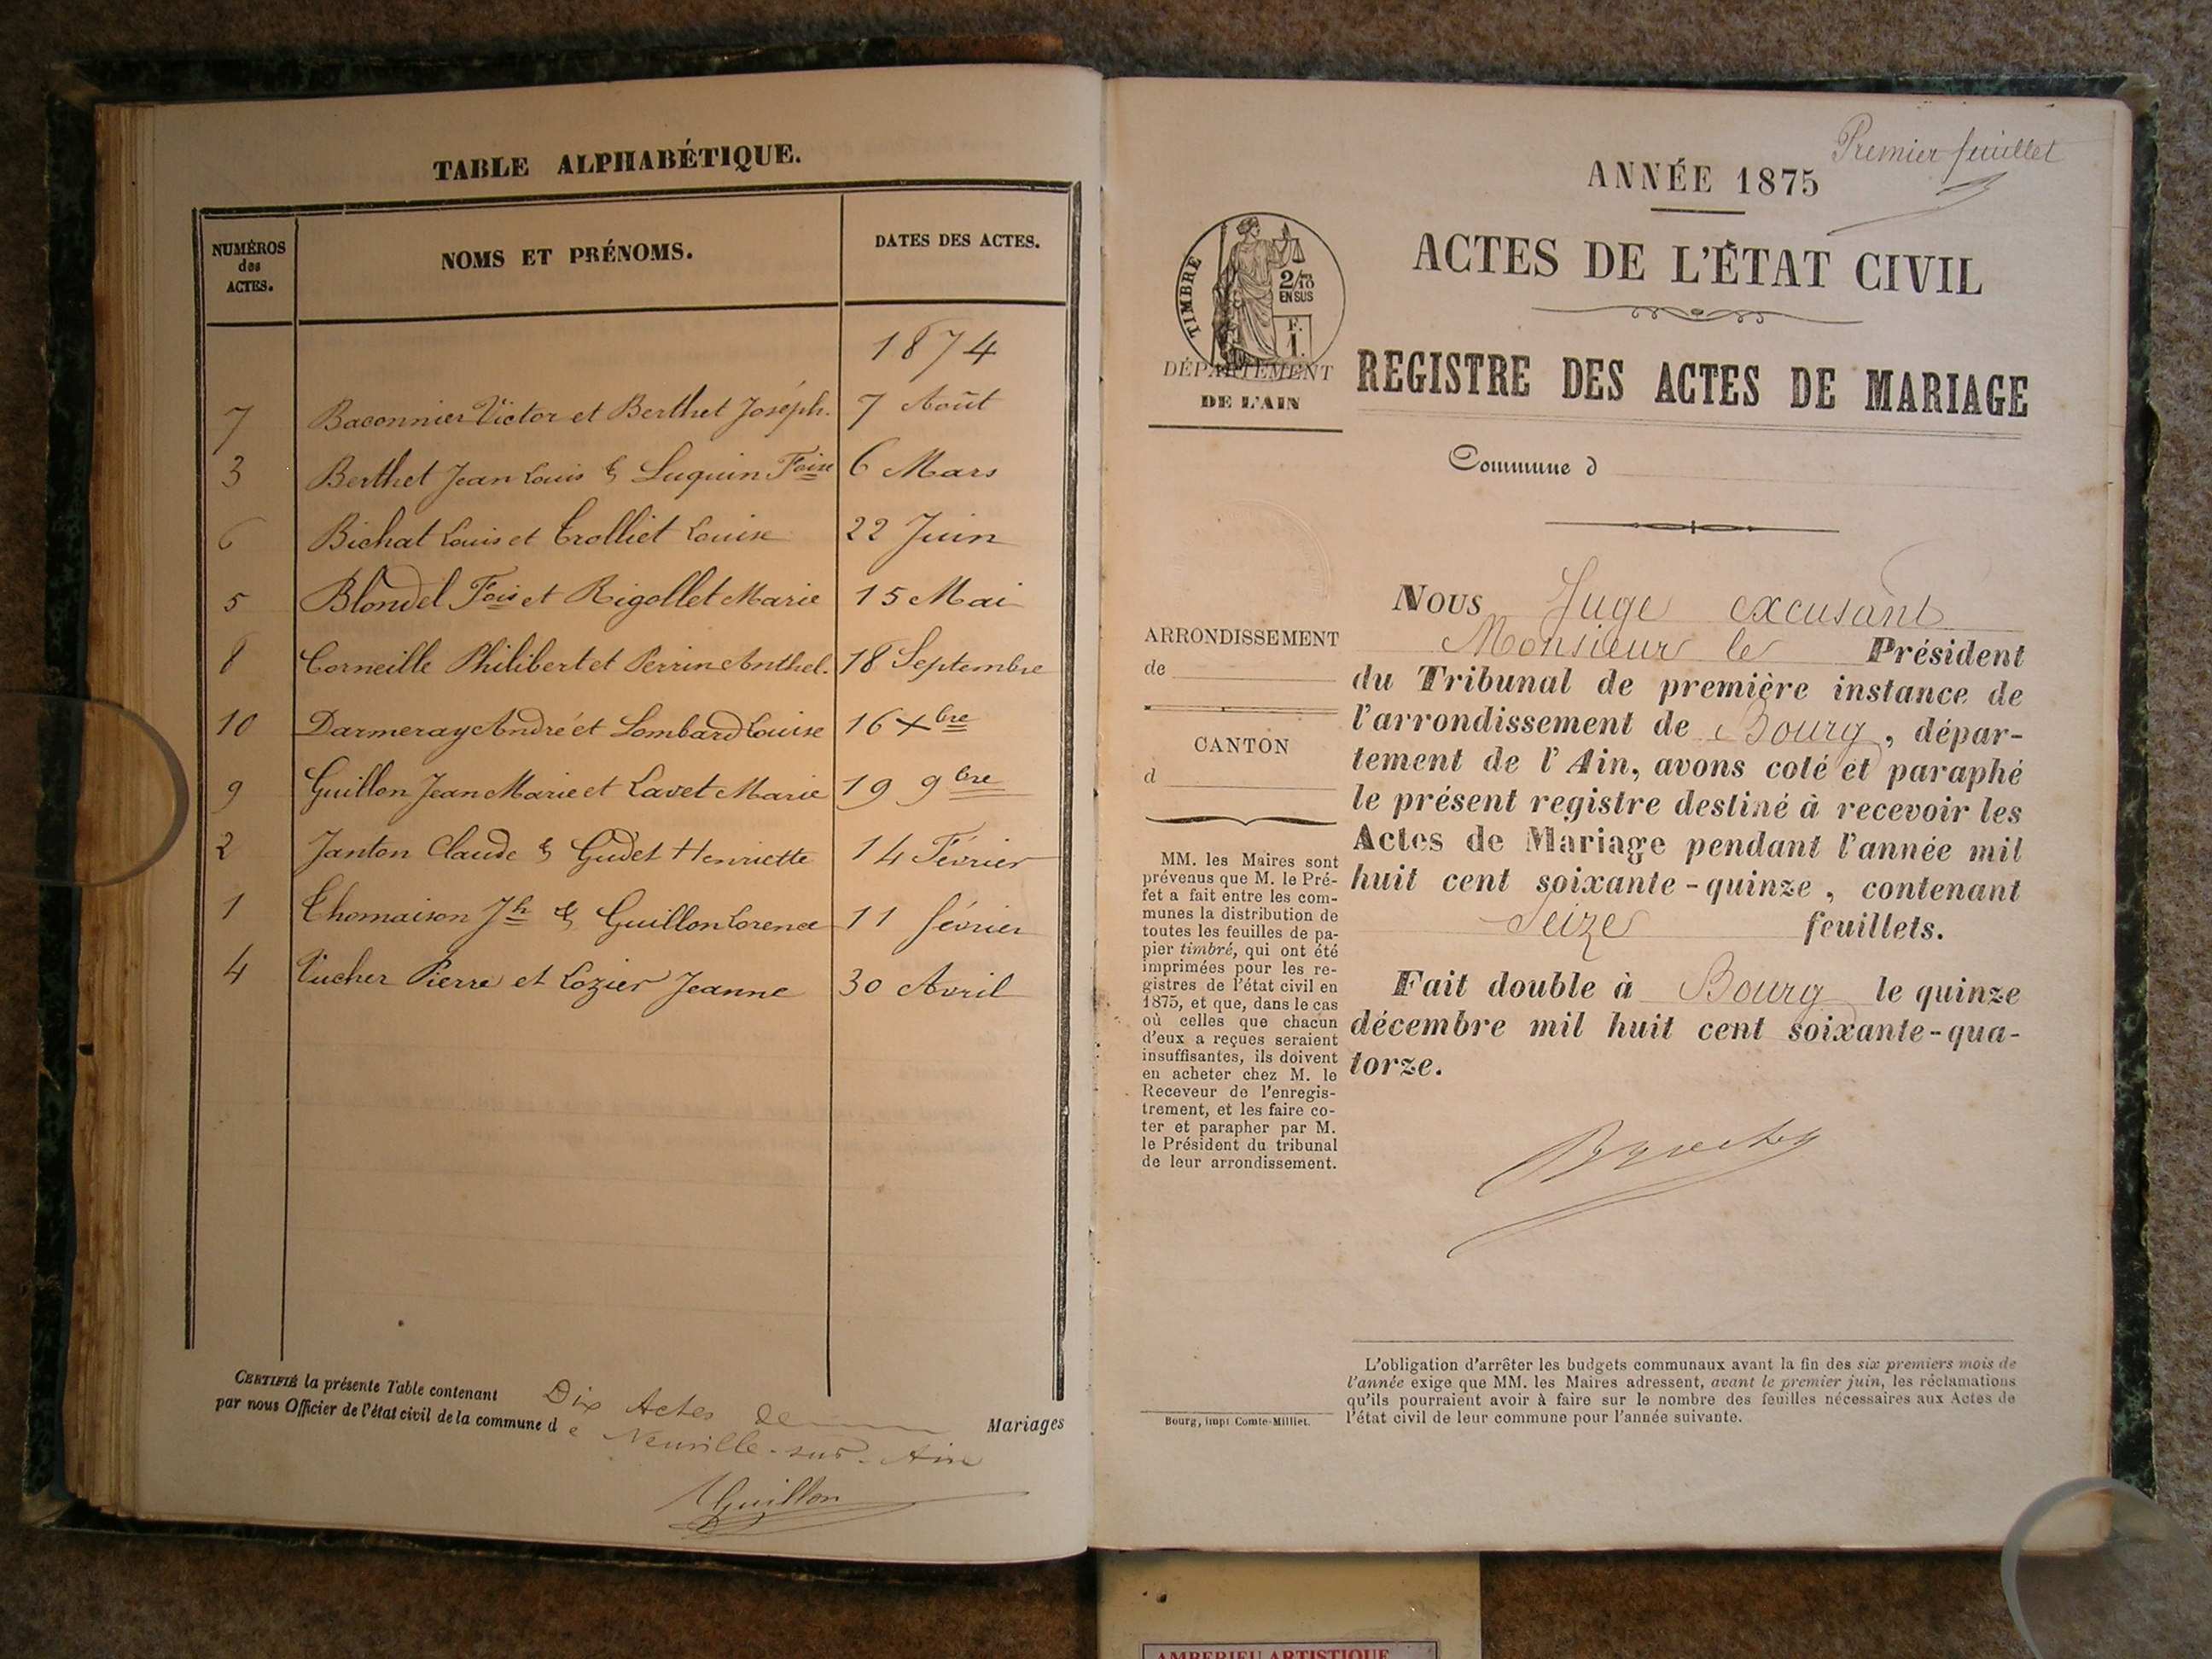 TABLE ALPHABÉTIQUE.
NUMÉROS des ACTES.
NOMS ET PRÉNOMS.
DATES DES ACTES.
1874
7 Baconnier Victor et Berthet Joséph. 7 Août
3 Berthet Jean Louis & Luquin Foise 6 Mars
6 Bichat Louis et Trolliet Louise 22 Juin
5 Blondel Fois et Rigollet Marie 15 Mai
8 Corneille Philibert et Perrin Anthel. 18 Septembre
10 Darmeray André et Lombard Louise 16 Xbre
9 Guillon Jean Marie et Lavet Marie 19 9bre
2 Janton Claude & Gudet Henriette 14 Février
1 Thomaison Jh & Guillon Lorence 11 février
4 Vucher Pierre et Lozier Jeanne 30 Avril
CERTIFIÉ la présente Table contenant Dix Actes de Mariages
par nous Officier de l'état civil de la commune de Neuville-sur-Ain
Guillon
Premier feuillet
ANNÉE 1875
ACTES DE L'ÉTAT CIVIL
TIMBRE
2/10
EN SUS
F.
1.
DÉPARTEMENT
DE L'AIN
REGISTRE DES ACTES DE MARIAGE
Commune d
ARRONDISSEMENT
de
CANTON
d
MM. les Maires sont
prévenus que M. le Pré-
fet a fait entre les com-
munes la distribution de
toutes les feuilles de pa-
pier timbré, qui ont été
imprimées pour les re-
gistres de l'état civil en
1875, et que, dans le cas
où celles que chacun
d'eux a reçues seraient
insuffisantes, ils doivent
en acheter chez M. le
Receveur de l'enregis-
trement, et les faire co-
ter et parapher par M.
le Président du tribunal
de leur arrondissement.
Bourg, impr Comte-Milliet.
Nous Juge excusant
Monsieur le Président
du Tribunal de première instance de
l'arrondissement de Bourg, dépar-
tement de l'Ain, avons coté et paraphé
le présent registre destiné à recevoir les
Actes de Mariage pendant l'année mil
huit cent soixante-quinze, contenant
Seize feuillets.
Fait double à Bourg le quinze
décembre mil huit cent soixante-qua-
torze.
L'obligation d'arrêter les budgets communaux avant la fin des six premiers mois de
l'année exige que MM. les Maires adressent, avant le premier juin, les réclamations
qu'ils pourraient avoir à faire sur le nombre des feuilles nécessaires aux Actes de
l'état civil de leur commune pour l'année suivante.
AMBERIEU ARTISTIQUE